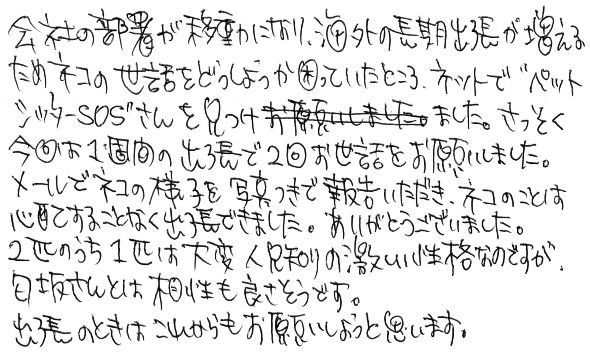 会社の部署が移動になり、海外の長期出張が増える
ためネコの世話をどうしようか困っていたところ、ネットで"ペット
シッターSOS"さんを見つけお願いしました。ました。さっそく
今回は1週間の出張で2回お世話をお願いしました。
メールでネコの様子を写真つきで報告いただき、ネコのことは
心配することなく出張できました。ありがとうございました。
2匹のうち1匹は大変人見知りの激しい性格なのですが、
匂坂さんとは相性も良さそうです。
出張のときはこれからもお願いしようと思います。